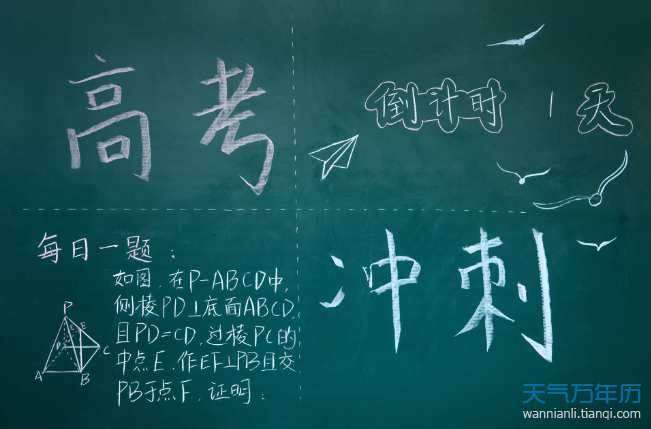 高考
倒计时 1 天
每日一题:
如图,在P-ABCD中,
侧棱PD⊥底面ABCD,
且PD=CD,过棱PC的
中点E,作EF⊥PB且交
PB于点F,证明:
P
E
D
C
A
B
冲刺
天气万年历
wannianli.tianqi.com